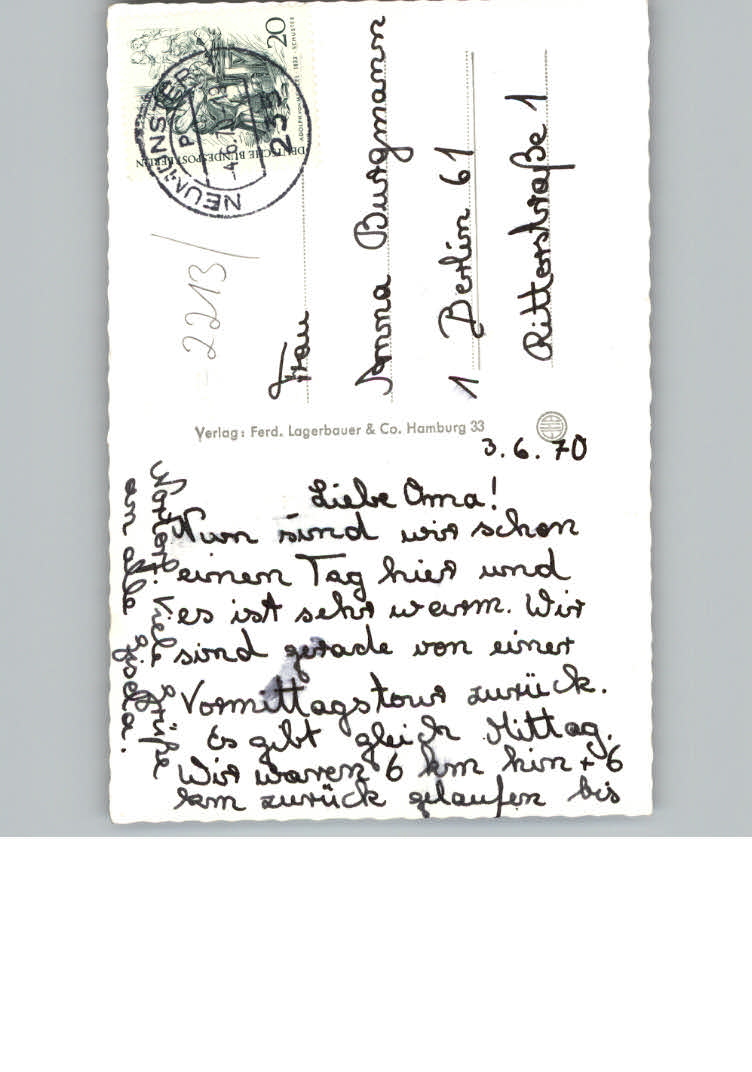 20
DEUTSCHE BUNDESPOST BERLIN
NEUMÜNSTER
-4.6.70
233
2213/
Frau
Anna Burgmann
1 Berlin 61
Ritterstraße 1
Verlag: Ferd. Lagerbauer & Co. Hamburg 33
3.6.70
Liebe Oma!
Nun sind wir schon
einen Tag hier und
es ist sehr warm. Wir
sind gerade von einer
Vormittagstour zurück.
Es gibt gleich Mittag.
Wir waren 6 km hin + 6
km zurück gelaufen bis
Nortorf. Viele Grüße
an alle Gisela.